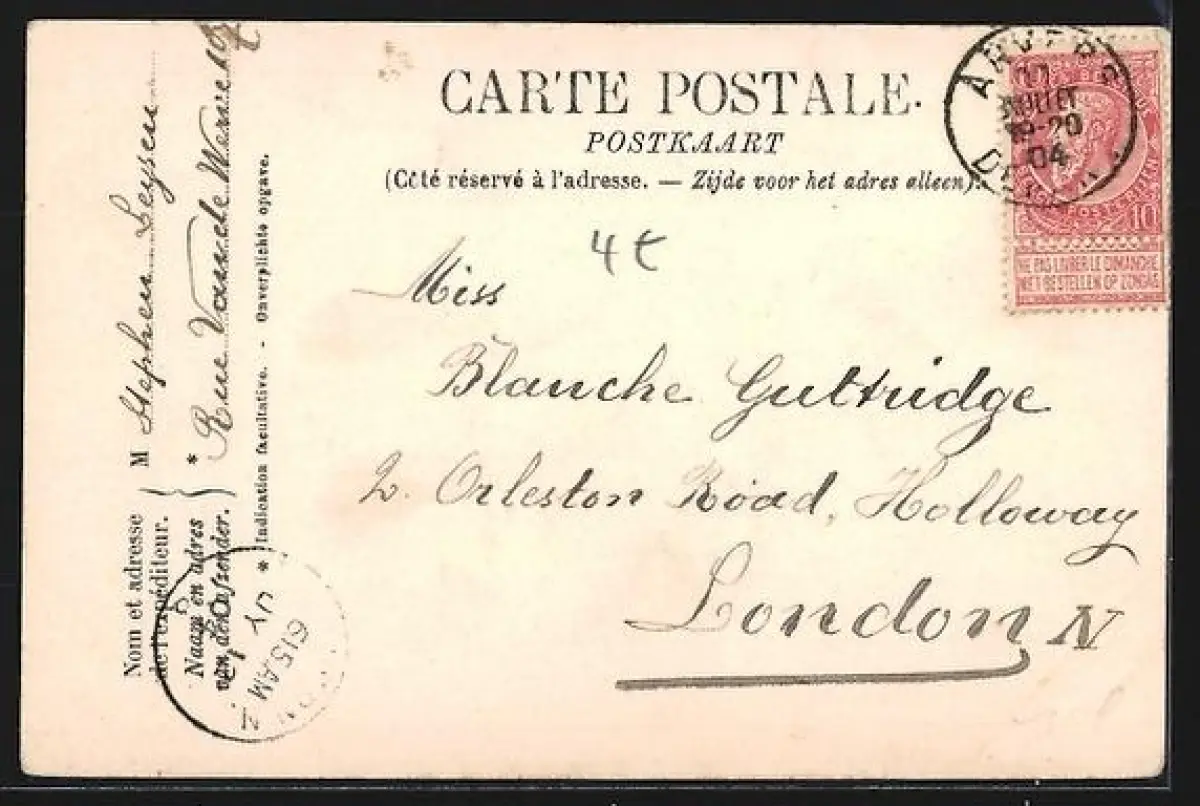 CARTE POSTALE.
POSTKAART
(Côté réservé à l'adresse. — Zijde voor het adres alleen).
4
Miss
Blanche Guttridge
2. Orleston Road, Holloway
London N
ANVERS
11
JUILLET
04
10
NE PAS LIVRER LE DIMANCHE
NIET BESTELLEN OP ZONDAG
Nom et adresse
de l'expéditeur.
M Stephen Leysen
Naam en adres
van den afzender.
* Rue Van de Werve
* Indication facultative. - Onverplichte opgave.
615AM
JY